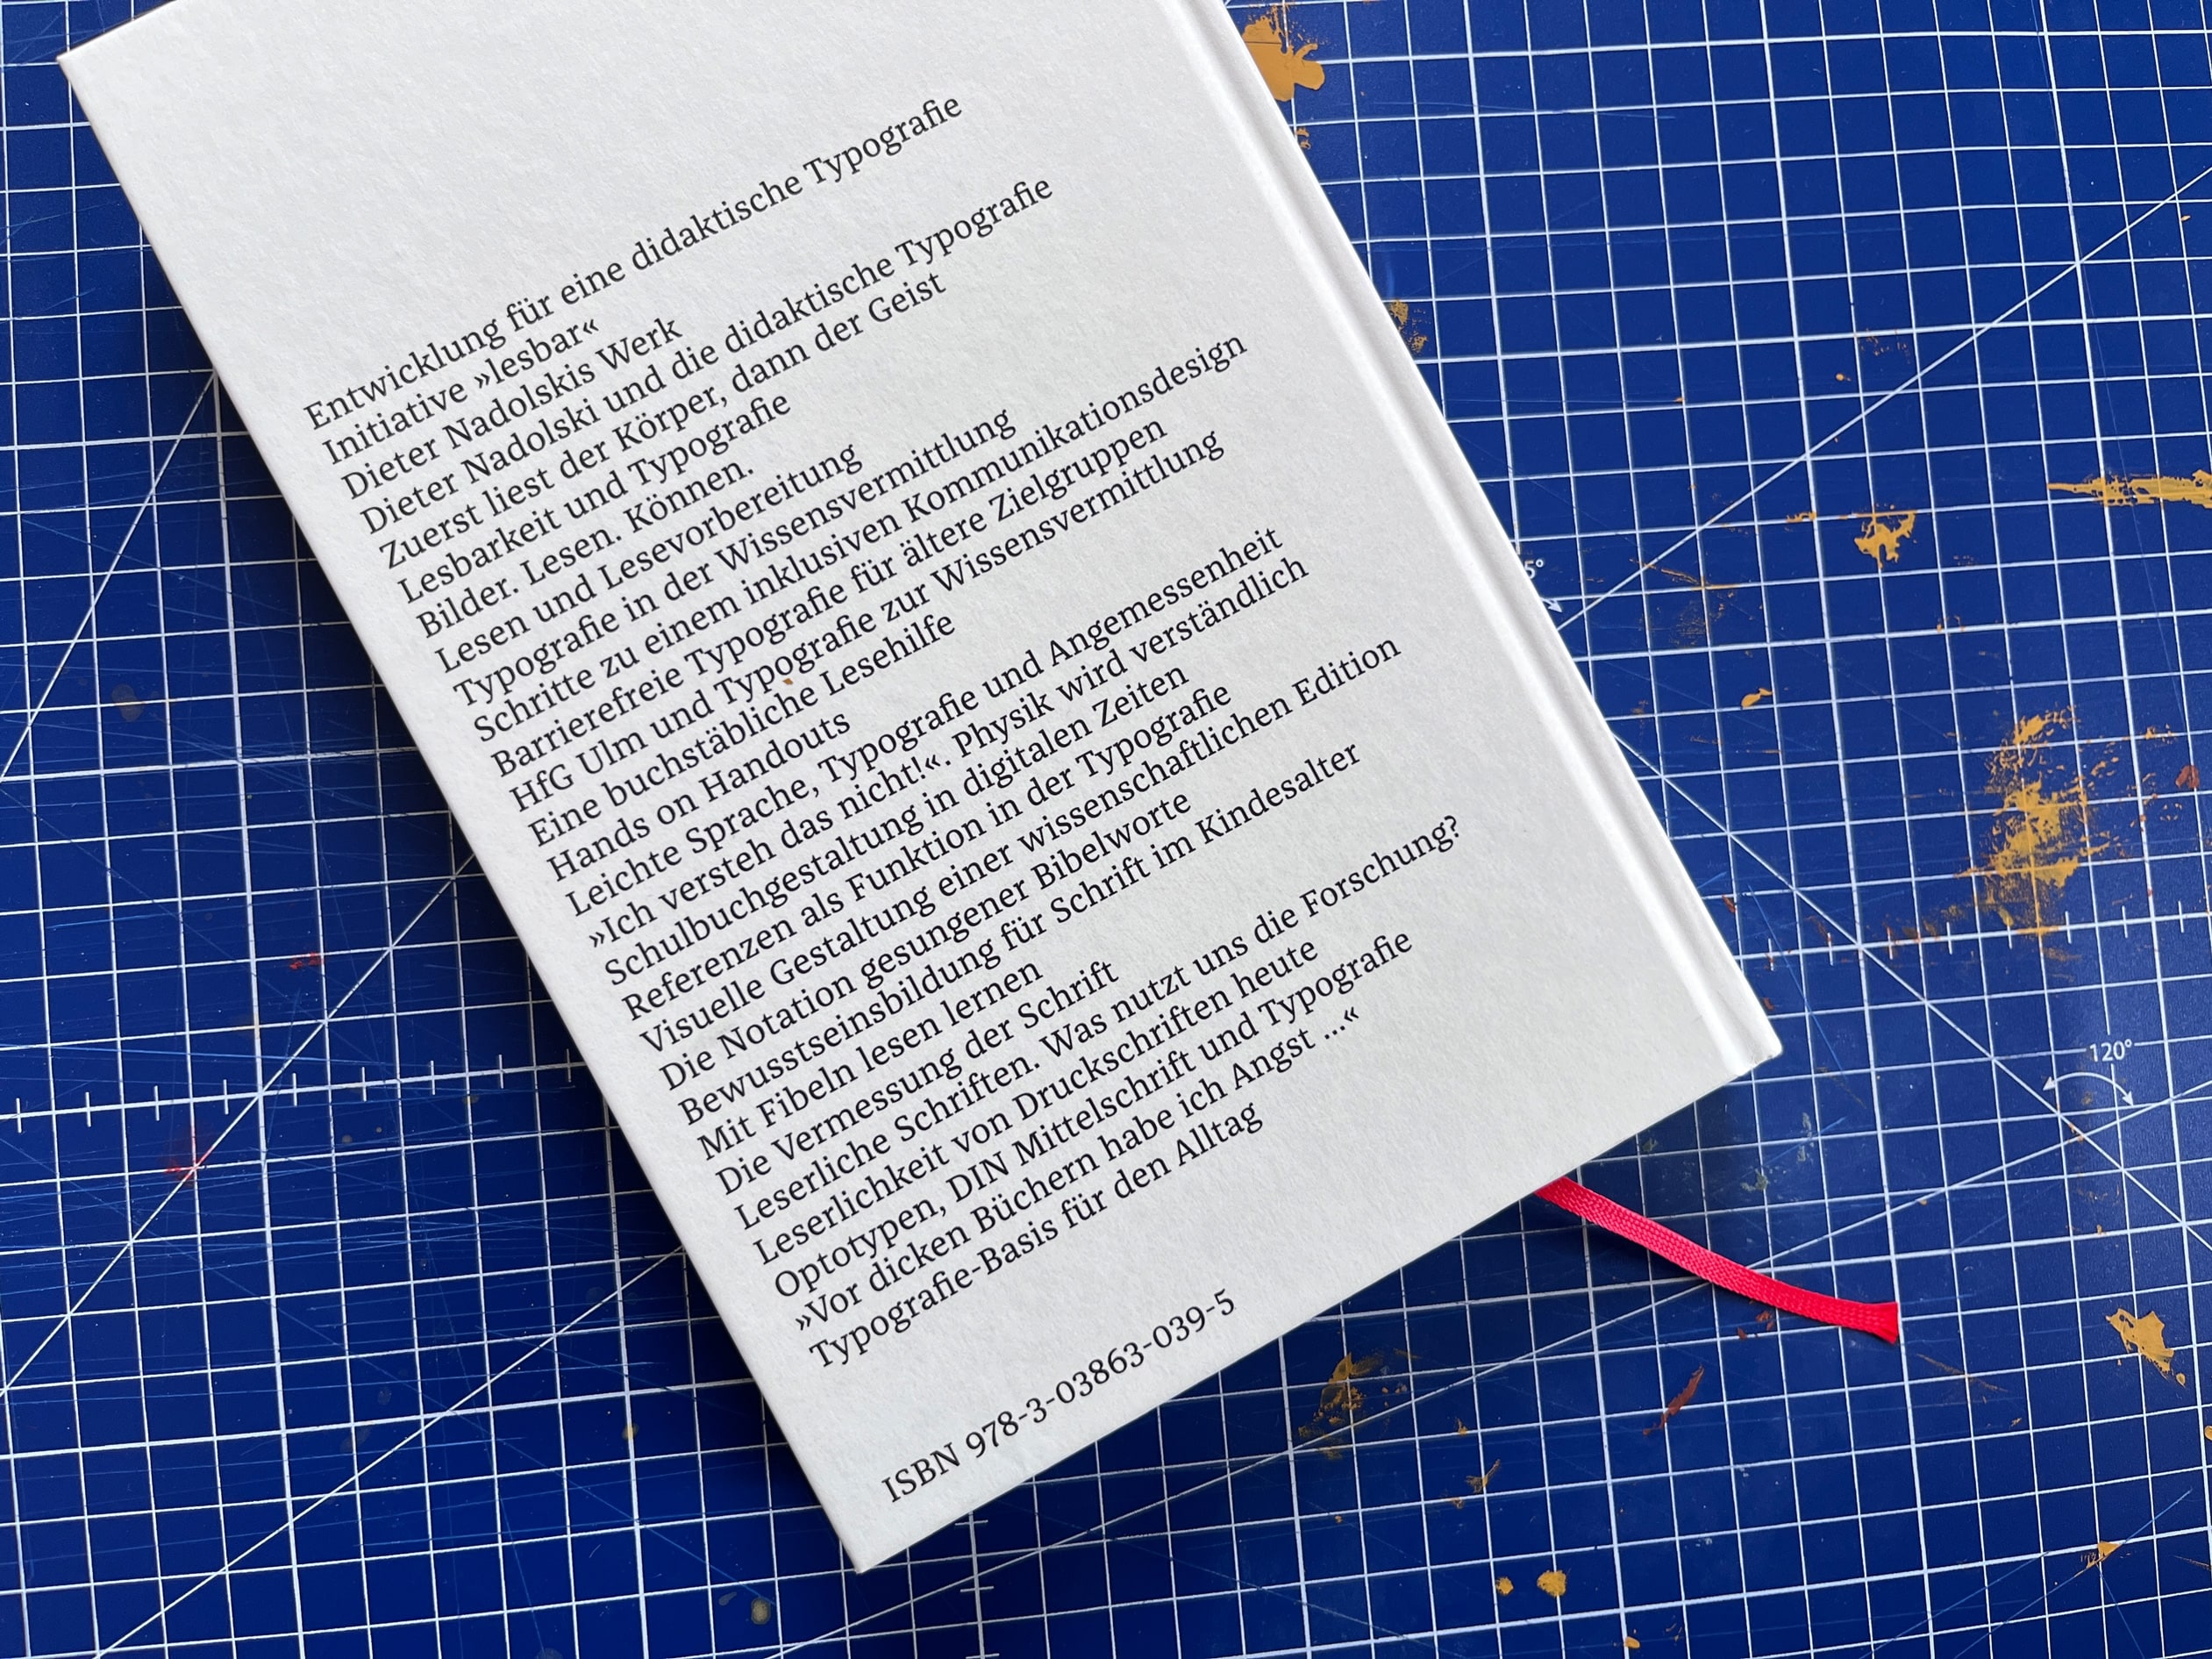 Entwicklung für eine didaktische Typografie
Initiative »lesbar«
Dieter Nadolskis Werk
Dieter Nadolski und die didaktische Typografie
Zuerst liest der Körper, dann der Geist
Lesbarkeit und Typografie
Bilder. Lesen. Können.
Lesen und Lesevorbereitung
Typografie in der Wissensvermittlung
Schritte zu einem inklusiven Kommunikationsdesign
Barrierefreie Typografie für ältere Zielgruppen
HfG Ulm und Typografie zur Wissensvermittlung
Eine buchstäbliche Lesehilfe
Hands on Handouts
Leichte Sprache, Typografie und Angemessenheit
»Ich versteh das nicht!«. Physik wird verständlich
Schulbuchgestaltung in digitalen Zeiten
Referenzen als Funktion in der Typografie
Visuelle Gestaltung einer wissenschaftlichen Edition
Die Notation gesungener Bibelworte
Bewusstseinsbildung für Schrift im Kindesalter
Mit Fibeln lesen lernen
Die Vermessung der Schrift
Leserliche Schriften. Was nutzt uns die Forschung?
Leserlichkeit von Druckschriften heute
Optotypen, DIN Mittelschrift und Typografie
»Vor dicken Büchern habe ich Angst …«
Typografie-Basis für den Alltag
ISBN 978-3-03863-039-5
120°